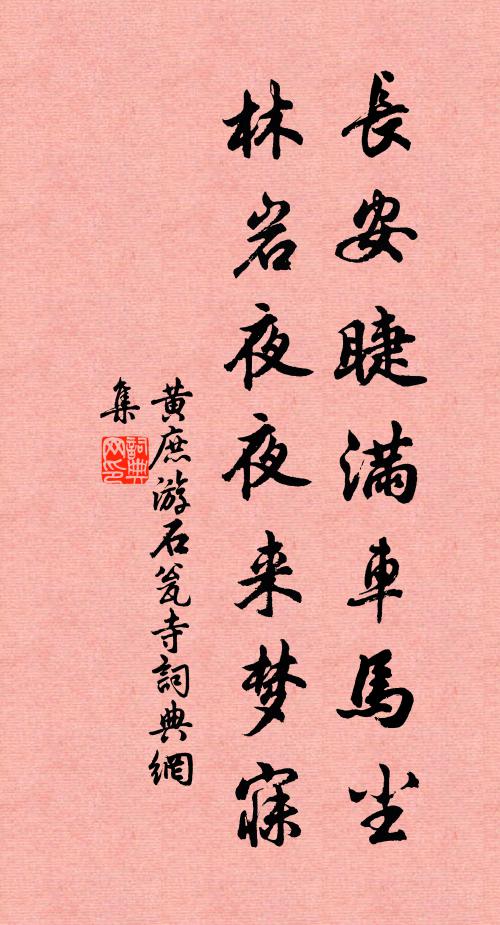 長安睫满車馬尘
林岩夜夜来梦寐
黄庶游石瓮寺詞典網
集
詞典网印